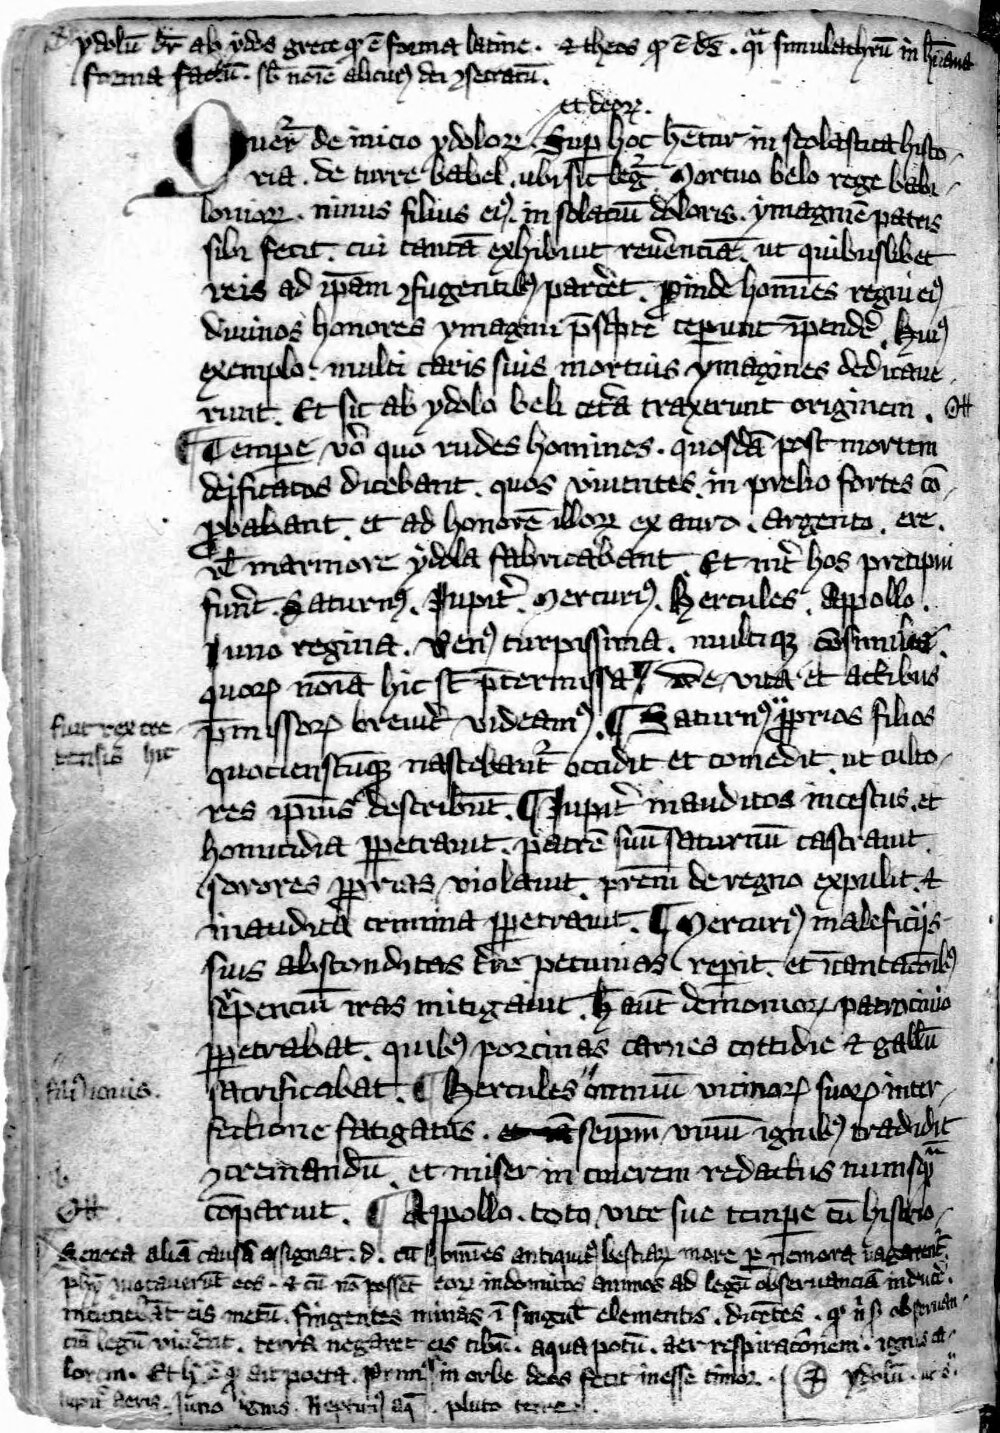 ydolū dr̄ ab ydos grece qđ ē forma latine. & theos qđ ē đs. q̄i simulachrū in huāna
forma factū. sb noīe alicuiꝰ dei ꝯsecratū.
et deoꝝ.
Querit̄ de inicio ydoloꝝ. Suꝑ hoc hētur in scolastica histo-
ria. de turre babel. ubi sic legit̄. Mortuo belo rege babi-
lonioꝝ. ninus filius eiꝰ. in solaciū doloris. ymaginē patris
sibi fecit. cui tantā exhibuit reverēciā. ut quibuslibet
reis ad ip̄am ꝯfugentibꝰ parcēt. Proinde homīes regni eiꝰ
divinos honores ymagini p̄scpte ceperunt īpendē. Huiꝰ
exemplo. multi caris suis mortuis ymagines dedicave-
runt. Et sic ab ydolo beli cetā traxerunt originem.
¶ Tempe vō quo rudes homines. quosdā post mortem
deificatos dicebant. quos viventes. in prelio fortes cō-
ꝓbabant. et ad honorē illoꝝ ex auro. argento. ere.
vl̄ marmore ydola fabricabant. Et int̄ hos precipui
fuert̄. Saturnꝰ. Jupit̄. Mercuriꝰ. Hercules. Appollo.
Juno regina. Venꝰ turpissima. multiqꝫ cōsimiles.
quoꝝ noīa hic st̄ p̄termissa. De vita et actibus
p̄missoꝝ brevit̄ videamꝰ. ¶ Saturnꝰ ꝓprios filios
fuit rex cre-
tensiū hic
quocienscūqꝫ nascebant̄ occidit et comedit. ut culto-
res ipsius describūt. ¶ Jupit̄ inauditos incestus. et
homicidia ꝑpetravit. patrē suū saturnū castravit.
sorores ꝓprias violavit. pr̄em de regno expulit. &
inaudita crimina ꝑpetravit. ¶ Mercuriꝰ maleficijs
suis absconditas tr̄re pecunias reperit. et īcantacōnibꝰ
serpenciū iras mitigavit. Hec aūt demonioꝝ patrocinio
ꝑpetrabat. quibꝰ porcinas carnes cottidie & gallū
sacrificabat. ¶ Hercules omniū vicinoꝝ suoꝝ inter-
filiꝰ iovis.
fectione fatigatus. seip̄m vivū ignibꝰ tradidit
ꝯcremandū. et miser in cinerem redactus numsq̄
cōparuit. ¶ Appollo. toto vite sue tempe cū histrio-
Seneca aliā causā assignat. d. cū homīes antiquitꝰ bestiaꝝ more ꝑ nemora vagarent̄.
phȳ vocaverūt eos. & cū nō possēt eoꝝ indomitos animos ad legū observanciā inducē.
incuciebāt eis metū. fingentes minas ī singul̄ elementis. dicētes. qđ n̄ s observan-
ciā legū viverēt. terra negaret eis cibū. aqua potū. aer respiracōnem. ignis ca-
lorem. Et h̄ ē qđ ait poeta. Primꝰ in orbe deos fecit inesse timor. ydolū
aeris. Juno ignis. Neptunꝰ aq̄. pluto terre.